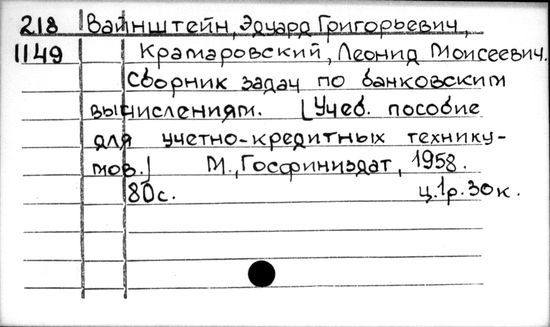 218 Вайнштейн, Эдуард Григорьевич,
1149 Крамаровский, Леонид Моисеевич.
Сборник задач по банковским
вычислениям. [Учеб. пособие
для учетно-кредитных технику-
мов.] М., Госфиниздат, 1958.
80с. ц.1р.30к.